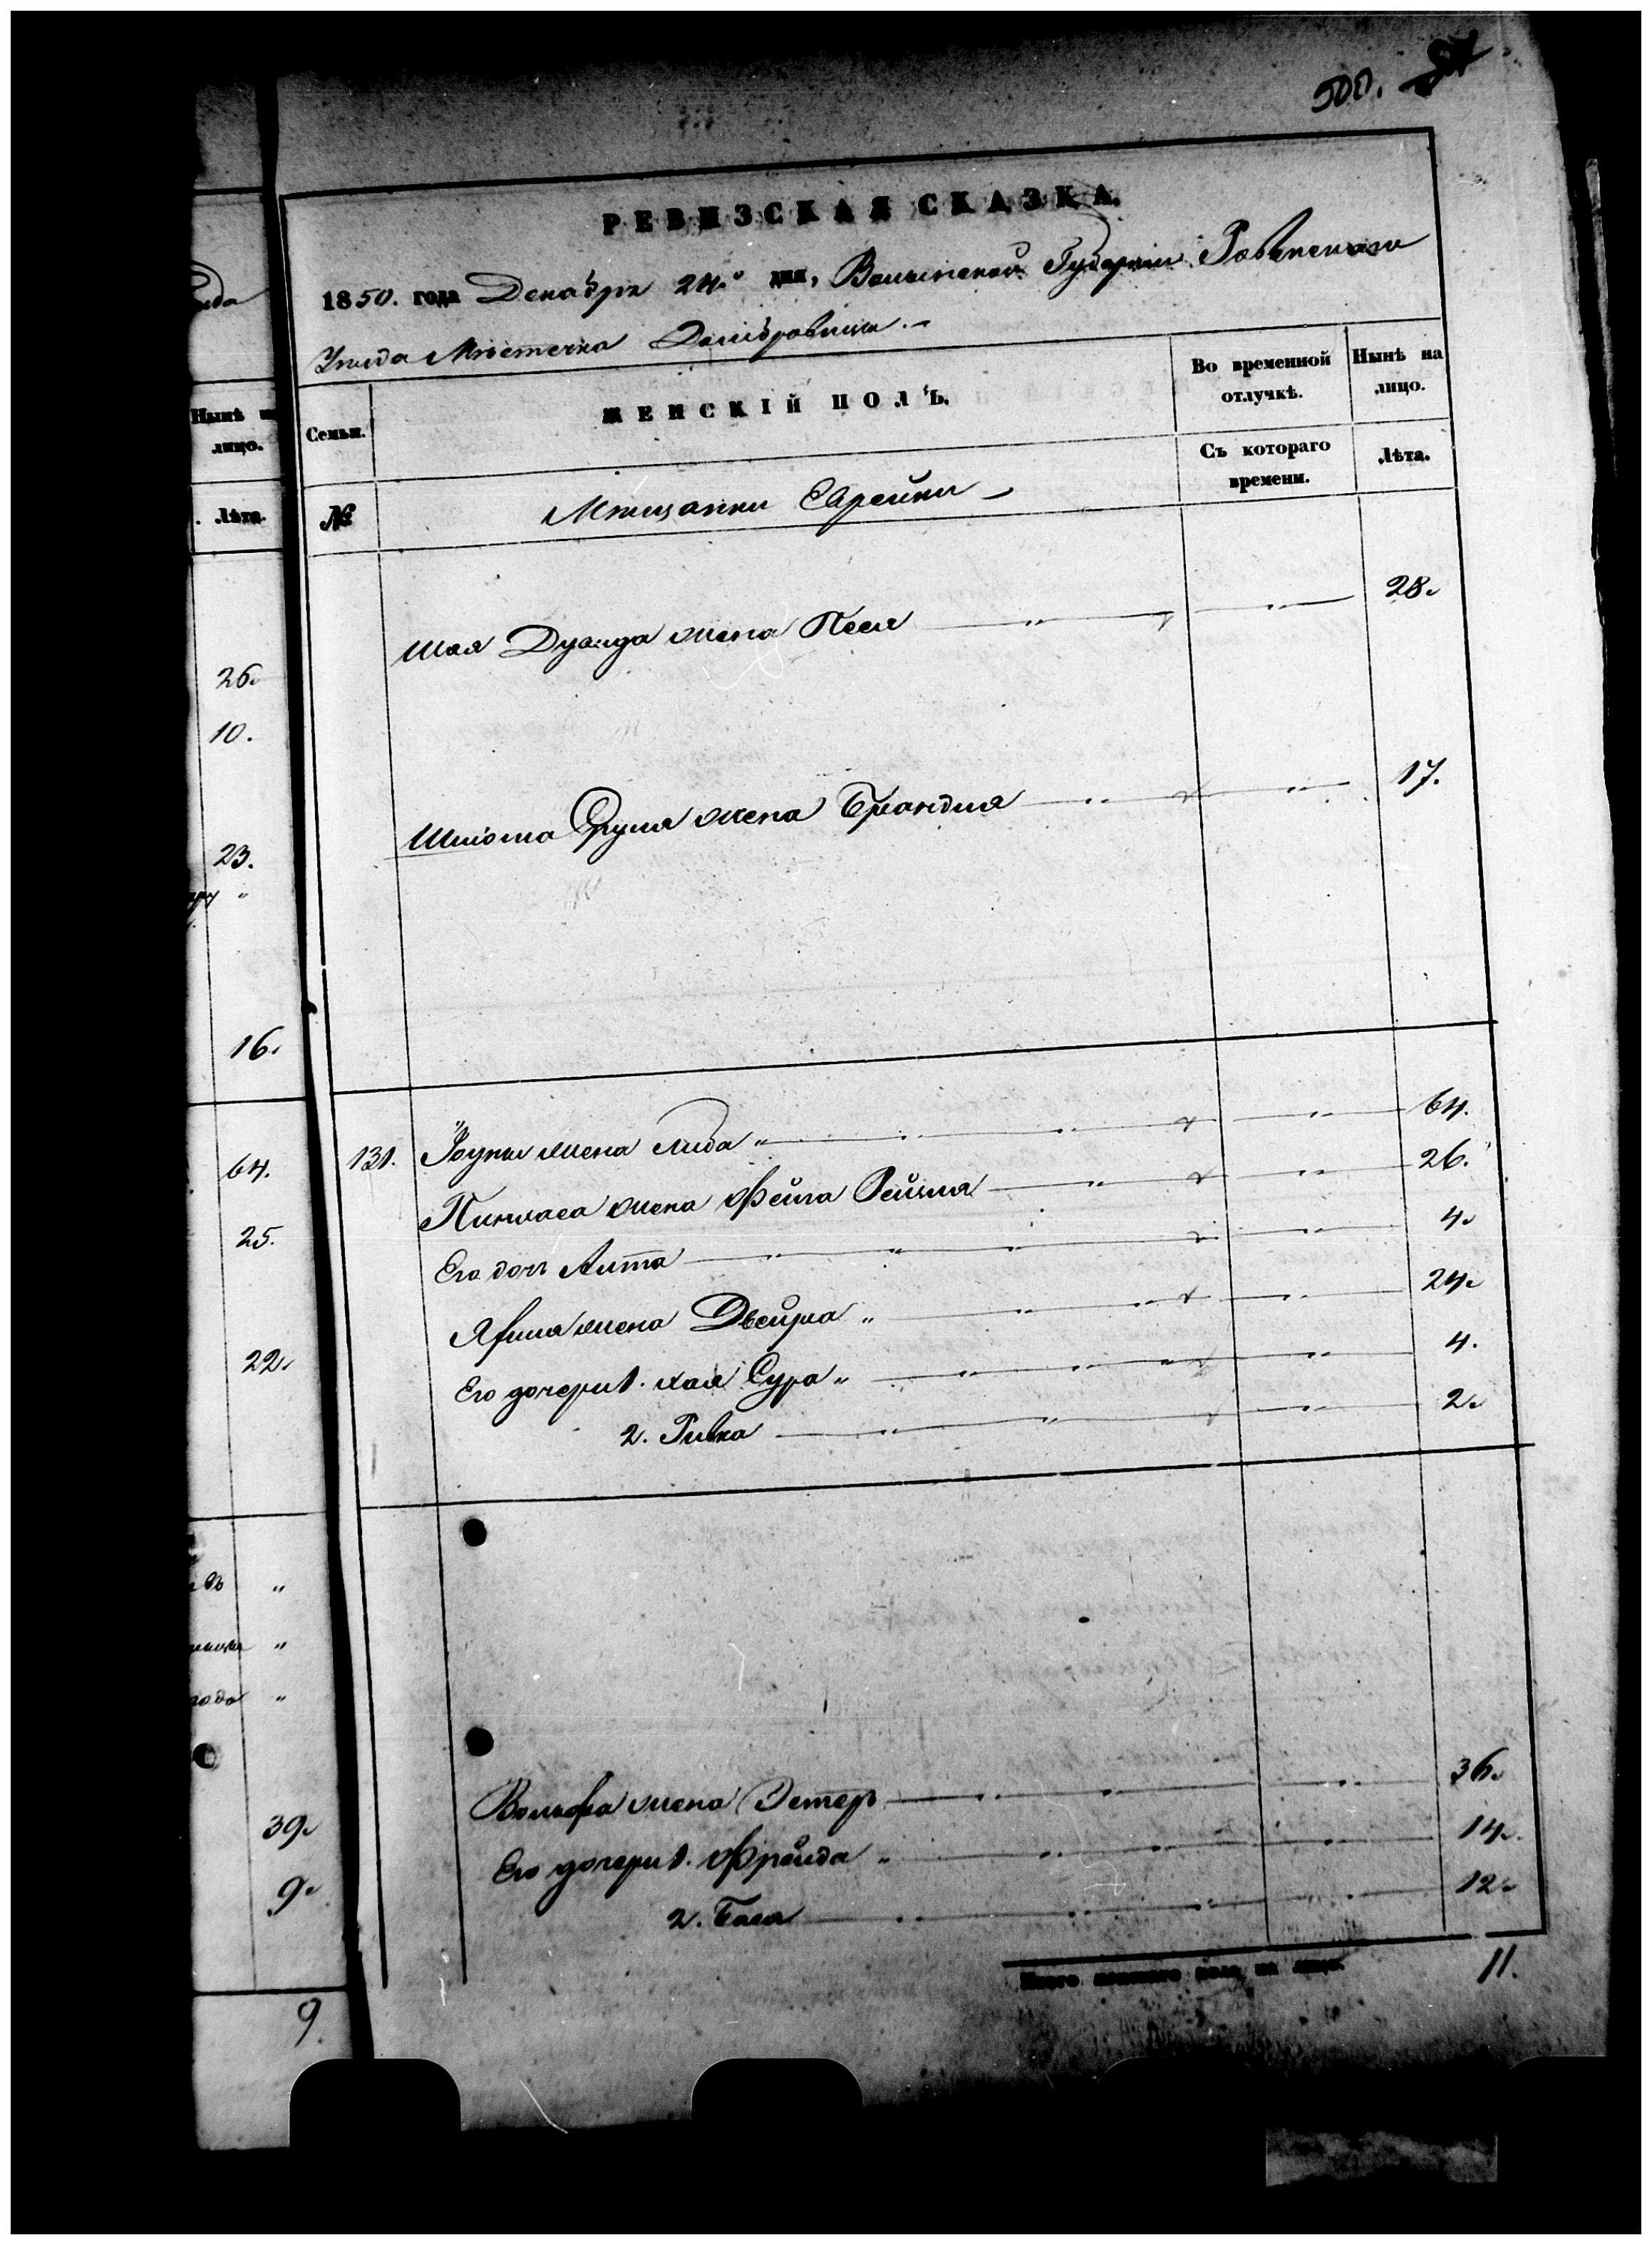 500.
РЕВИЗСКАЯ СКАЗКА.
1850. года Декабря 24.го дня, Волынской Губернии Ровенскаго
Уезда Местечка Домбровицы.
Семьи.
ЖЕНСКІЙ ПОЛЪ.
Во временной отлучкѣ.
Нынѣ на лицо.
Съ котораго времени.
Лѣта.
№
Мещанки Еврейки
Шая жена Песя 28.
Шліома Сруля жена Брандля 17.
131. жена Либа 64.
Пинхаса жена Фейга Рейзля 26.
Его дочь Алта 4.
жена Двейра 24.
Его дочери 1. Хая Сура 4.
2. Ривка 2.
Вольфа жена Эстер 36.
Его дочери 1. Фрейда 14.
2. Бася 12.
Итого женскаго пола на лицо. 11.
Нынѣ
лицо.
Лѣта.
26.
10.
23.
16.
64.
25.
22.
39.
9.
9.